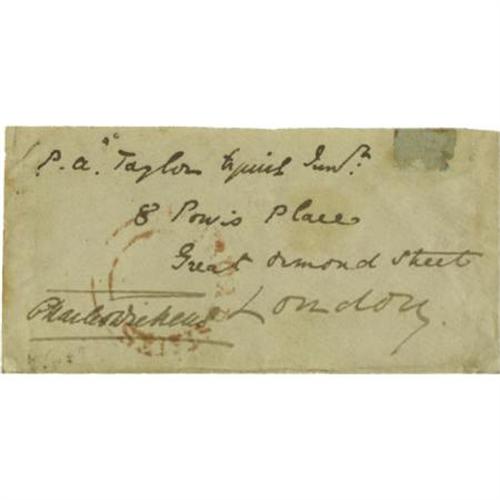 P. A. Taylor Esquire Junr.
8 Powis Place
Great Ormond Street
London
Charles Dickens